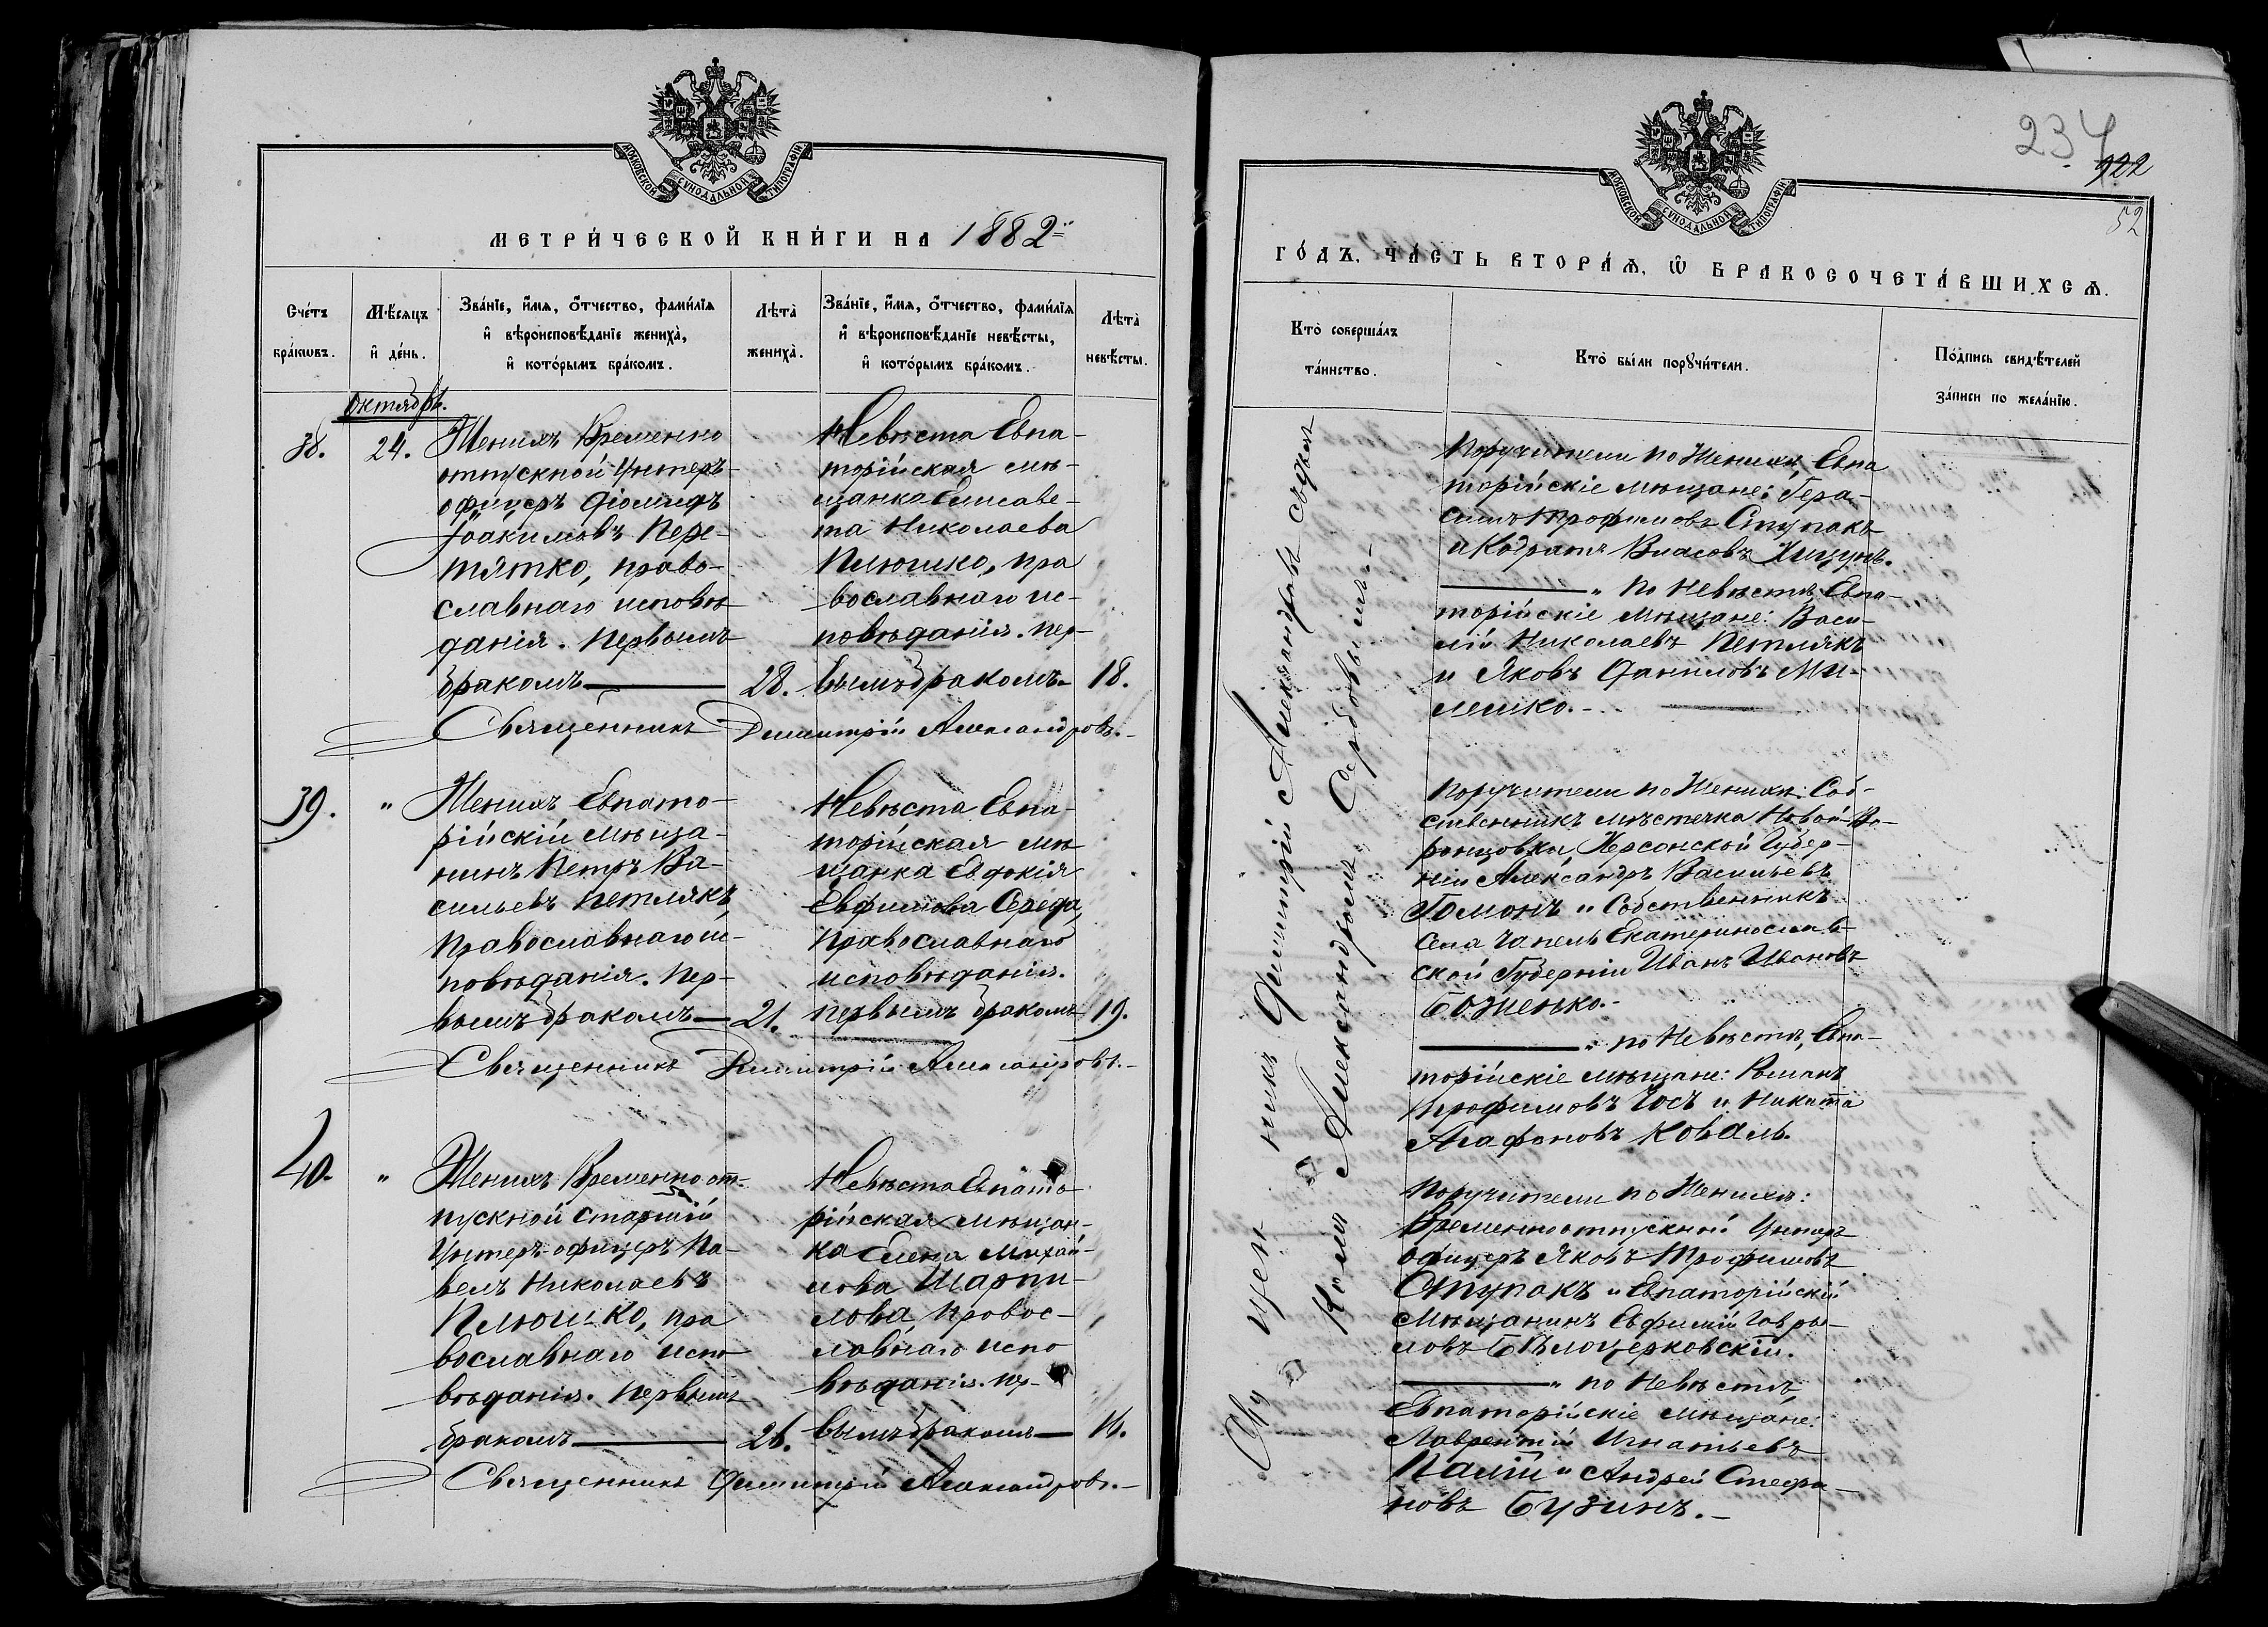 МОСКОВСКОЙ СѴНОДАЛЬНОЙ ТИПОГРАФІИ
МЕТРИ́ЧЕСКОЙ КНИ́ГИ НА 1882
Сче́тъ бра́кѡвъ.
Мѣ́сяцъ и҆ де́нь.
Зва́нїе, и҆́мѧ, ѻ҆́тчество, фами́лїѧ
и҆ вѣроисповѣ́данїе жениха̀,
и҆ кото́рымъ бра́комъ.
Лѣта̀ жениха̀.
Зва́нїе, и҆́мѧ, ѻ҆́тчество, фами́лїѧ
и҆ вѣроисповѣ́данїе невѣ́сты,
и҆ кото́рымъ бра́комъ.
Лѣта̀ невѣ́сты.
Октябрь.
38.
24.
Женихъ Временно
отпускной Унтеръ-
офицеръ Діомидъ
Іоакимовъ Пере-
тятко, право-
славнаго исповѣ
данія. Первымъ
бракомъ
28.
Невѣста Евпа-
торійская мѣ-
щанка Елисаве-
та Николаева
Плюшко, пра
вославнаго ис-
повѣданія. пер-
вымъ бракомъ
18.
Священникъ Димитрій Александровъ.
39.
"
Женихъ Евпато-
рійскій мѣща-
нинъ Петръ Ва-
сильевъ Петлякъ,
православнаго ис-
повѣданія. Пер-
вымъ бракомъ
21.
Невѣста Евпа-
торійская мѣ
щанка Евдокія
Евфимова Середа,
православнаго
исповѣданія.
первымъ бракомъ
19.
Священникъ Димитрій Александровъ.
40.
"
Женихъ Временно от-
пускной старшій
Унтеръ-офицеръ Па-
велъ Николаевъ
Плюшко, пра
вославнаго испо
вѣданія. Первымъ
бракомъ
26.
Невѣста Евпато
рійская мѣщан-
ка Елена Михай-
лова Шарпи-
лова, правос-
лавнаго испо
вѣданія. пер-
вымъ бракомъ
Священникъ Димитрій Александровъ.
234
922
52
МОСКОВСКОЙ СѴНОДАЛЬНОЙ ТИПОГРАФІИ
ГО́ДЪ, ЧА́СТЬ ВТОРА́Ѧ, Ѡ҆ БРАКОСОЧЕТА́ВШИХСѦ.
Кто̀ соверша́лъ
та́инство.
Кто̀ бы́ли порꙋчи́тели.
По́дпись свидѣ́телей
за́писи по жела́нїю.
Священникъ Димитрій Александровъ съ
Александромъ Сердобовымъ.
Поручители по Женихѣ, Евпа
торійскіе мѣщане: Гера-
симъ Трофимовъ Ступакъ
и Кодратъ Власовъ
" по Невѣстѣ, Евпа-
торійскіе мѣщане: Васи-
лій Николаевъ Петлякъ
и Яковъ Даниловъ Ми-
лешко.
Поручители по Женихѣ: Соб-
ственникъ мѣстечка Новой-Во-
ронцовки Херсонской Губер-
ніи Александръ Васильевъ
Гомонъ и Собственникъ
села Чапель Екатеринослав-
ской Губерніи Иванъ Ивановъ
Боженко.
" по Невѣстѣ, Евпа-
торійскіе мѣщане: Романъ
Трофимовъ Усъ и Никита
Агафоновъ Коваль.
Поручители по Женихѣ:
Временноотпускной Унтеръ
офицеръ Яковъ Трофимовъ
Ступакъ и Евпаторійскій
Мѣщанинъ Евфимій Гаври-
ловъ Бѣлоцерковскій.
" по Невѣстѣ,
Евпаторійскіе мѣщане:
Лаврентій Игнатьевъ
Палій и Андрей Стефа-
новъ Бузинъ.